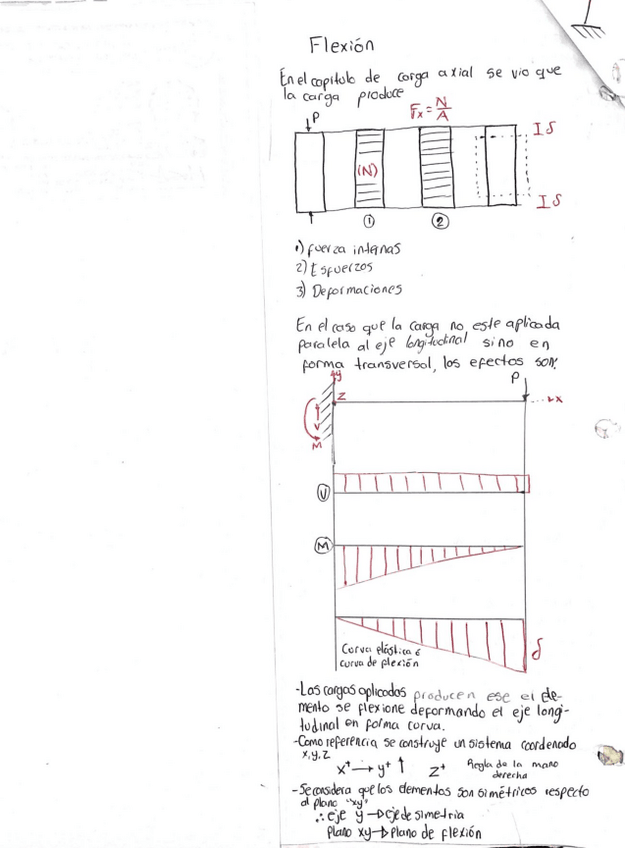 Flexión
En el capitulo de carga axial se vio que
la carga produce
P
σx = N/A
I δ
(N)
I δ
① ②
1) fuerza internas
2) Esfuerzos
3) Deformaciones
En el caso que la carga no este aplicada
paralela al eje longitudinal sino en
forma transversal, los efectos son:
y P
z x
V
M
V
M
δ
Curva elástica ó
curva de flexión
-Las cargas aplicadas producen ese el ele-
mento se flexione deformando el eje longi-
tudinal en forma curva.
-Como referencia se construye un sistema coordenado
x,y,z
x+ → y+ ↑ z+ Regla de la mano
derecha
-Se considera que los elementos son simétricos respecto
al plano "xy"
∴ eje y → eje de simetria
Plano xy → plano de flexión